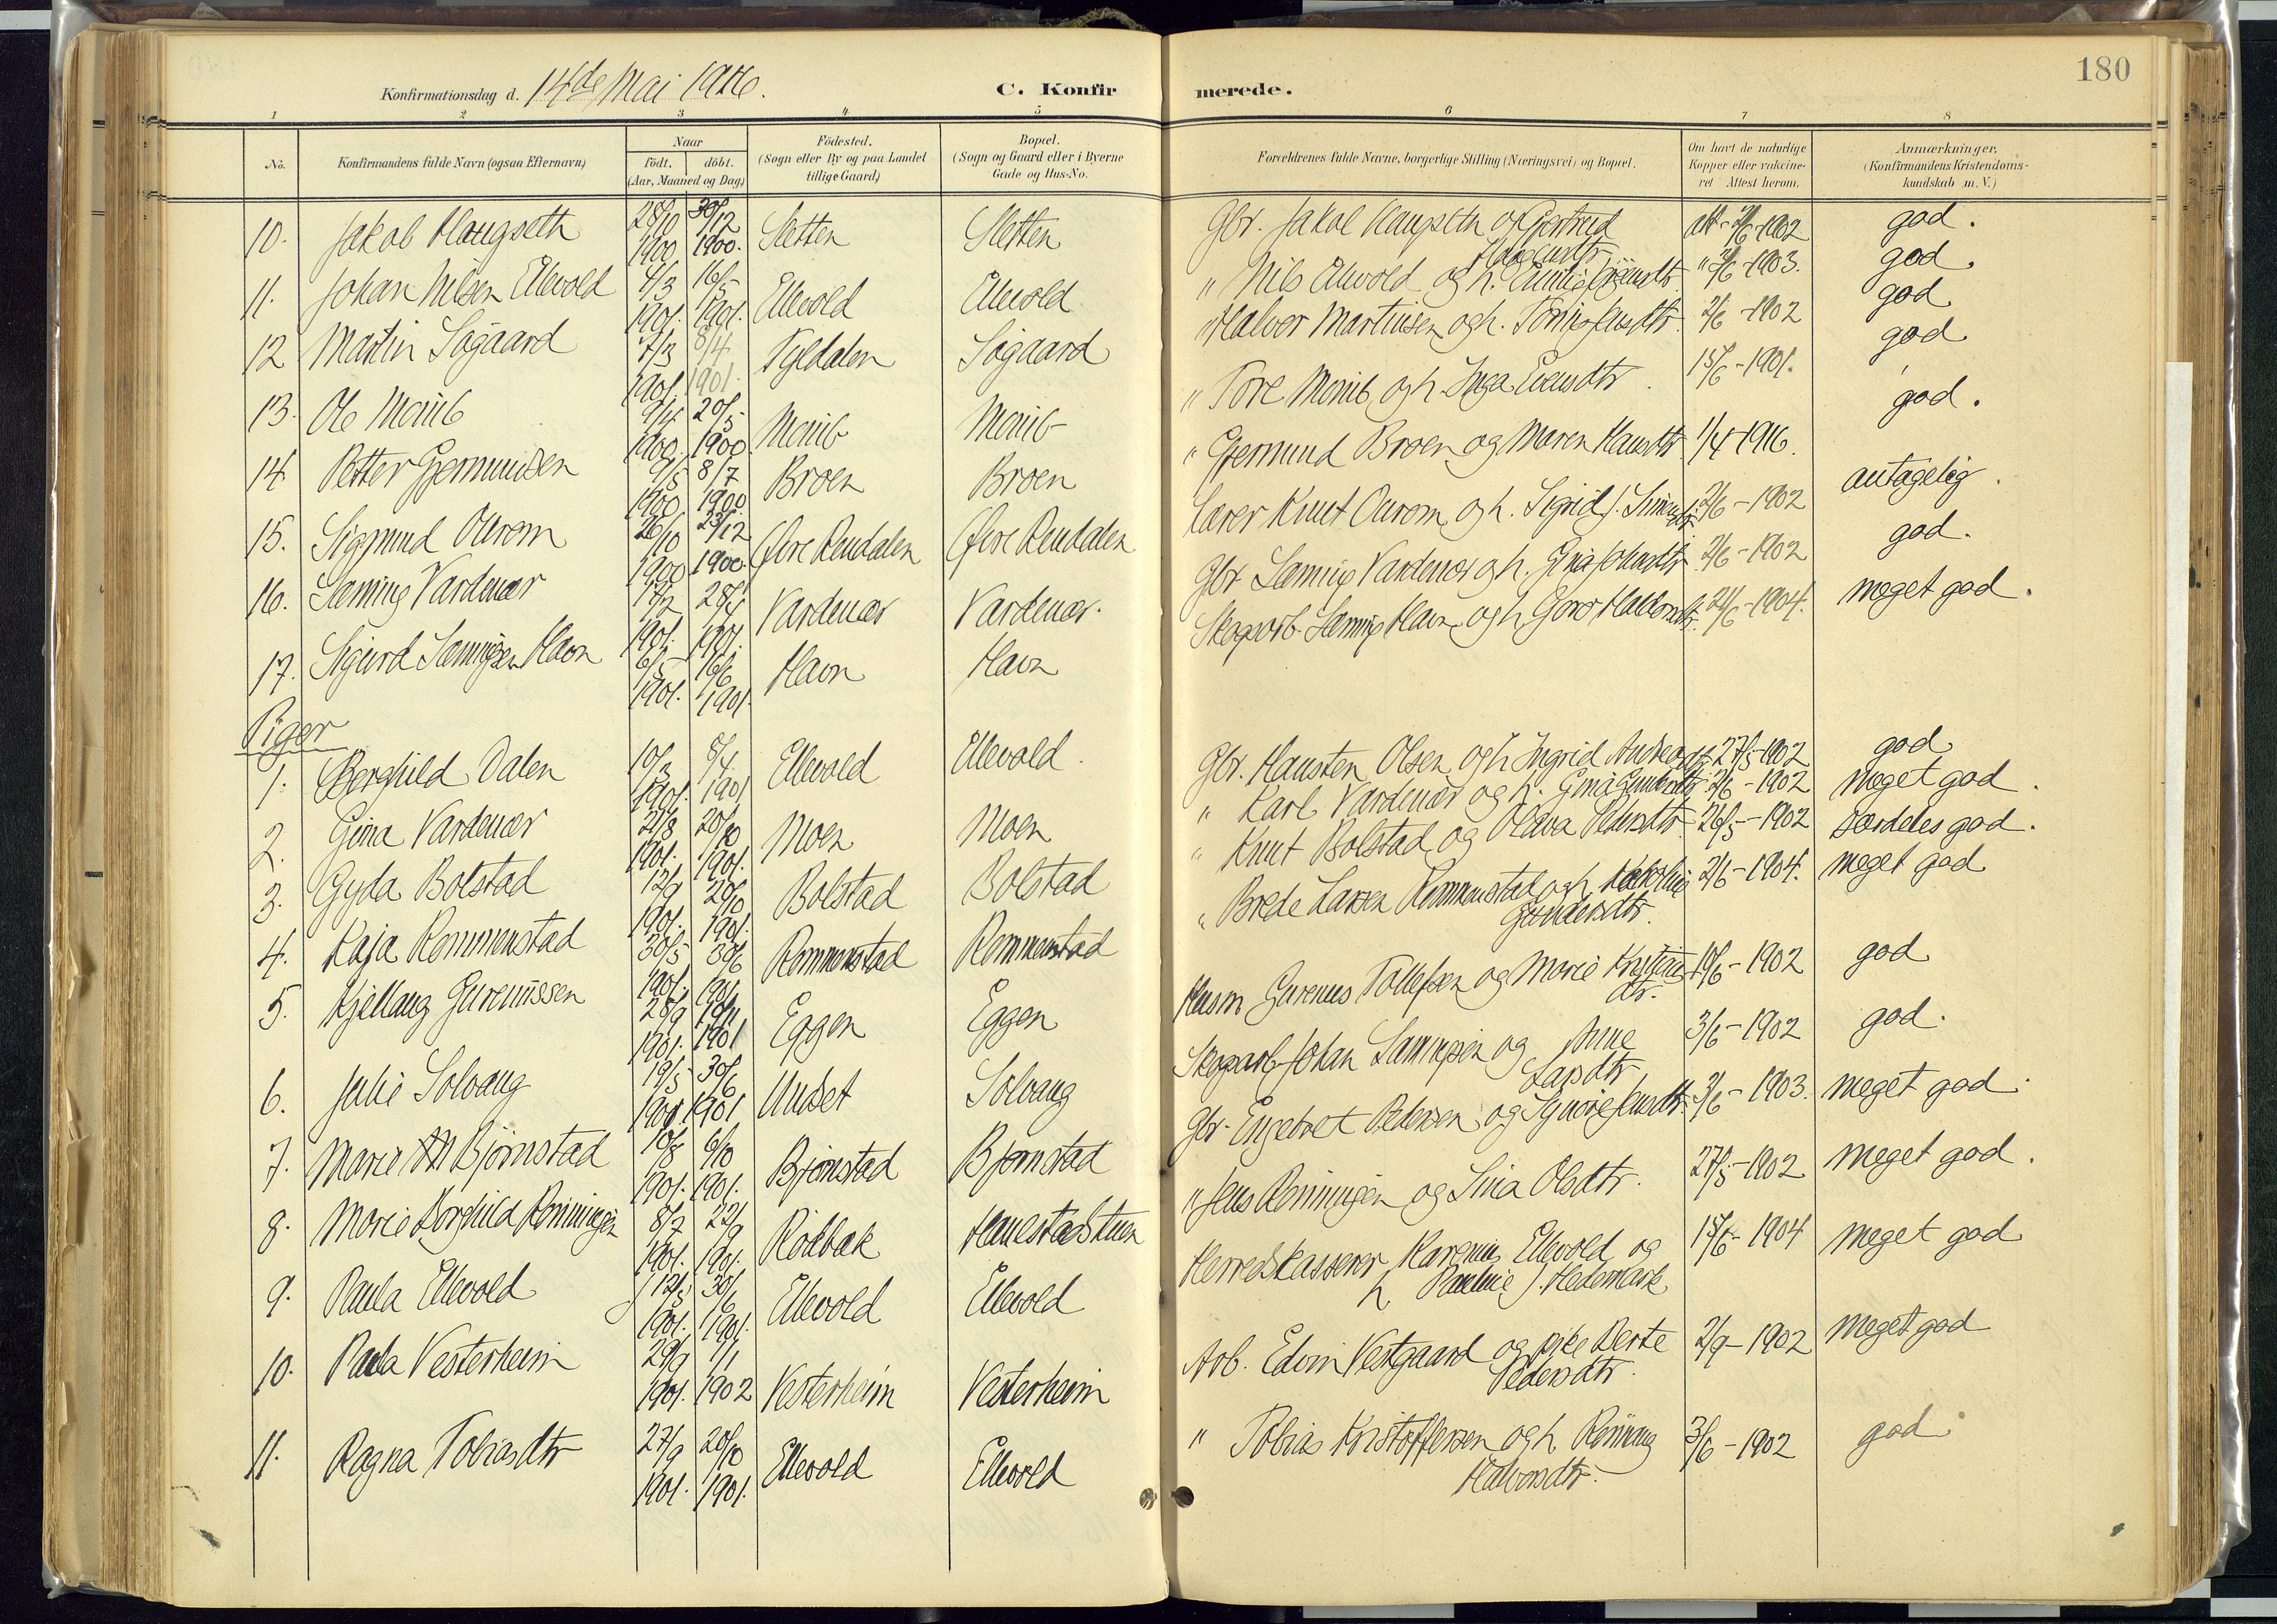 180
Konfirmationsdag d. 14de Mai 1916. C. Konfirmerede.
1 2 3 4 5 6 7 8
No. Konfirmandens fulde Navn (ogsaa Efternavn) Naar födt. döbt. (Aar, Maaned og Dag) Födested. (Sogn eller By og paa Landet tillige Gaard) Bopæl. (Sogn og Gaard eller i Byerne Gade og Hus-No. Forældrenes fulde Navne, borgerlige Stilling (Næringsvei) og Bopæl. Om havt de naturlige Kopper eller vakcineret Attest herom. Anmærkninger. (Konfirmandens Kristendomskundskab m. V.)
10. Jakob Haugseth 28/10 1900 30/12 1900. Sletten Sletten Gbr. Jakob Haugseth og Gjertrud 1902 god.
11. Johan Nilsen Ellevold 4/3 1901. 16/5 1901. Ellevold Ellevold " Nils Ellevold og h. 1903. god.
12 Martin Søgaard 7/3 1901. 8/4 1901. Tyldalen Søgaard " Halvor Martinsen og h. 2/6 - 1902 god
13. Ole Mømb 9/4 1900. 20/5 1900 Mømb Mømb " Tore Mømb og h. Inga Evensdtr. 15/6 - 1901. god
14 Petter Gjermundsen 9/5 1900 8/7 1900. Broen Broen " Gjermund Broen og Maren Hansdtr. 1/4 1916. god.
15. Sigmund Aurom 26/10 1900 23/12 1900. Øvre Rendalen Øvre Rendalen Lærer Knut Aurom og h. Sigrid J. 2/6 - 1902 antagelig.
16. Sæming Vardenær 17/2 1901. 28/4 1901. Vardenær Vardenær. Gbr. Sæming Vardenær og h. 2/6 - 1902 god.
17. Sigurd Sæmingsen Havn 6/5 1901. 16/6 1901 Havn Havn Skogsarb. Sæming Havn og h. Goro Halvorsdtr. 2/6 - 1904. meget god.
Piger
1. Borghild Dalen 10/3 1901. 8/4 1901 Ellevold Ellevold. Gbr. Hansten Olsen og h Ingrid 27/5 - 1902 god
2. Gina Vardenær 21/8 1901. 20/10 1901. Moen Moen " Karl Vardenær og h. Gina 2/6 - 1902 meget god.
3. Gyda Bolstad 12/9 1901. 20/10 1901. Bolstad Bolstad " Knut Bolstad og Oldva Pedersdtr. 26/5 - 1902 særdeles god.
4. Kaja Rommenstad 30/5 1901. 30/6 1901. Rommenstad Rommenstad " Brede Larsen Rommenstad og h. 2/6 - 1904. meget god
Gundersdtr.
5. Kjellaug Gureniussen 28/9 1901. 10/11 1901 Eggen Eggen Husm Gurenus Tollefsen og Marie 1902 god
6. Julie Solvang 19/5 1901 30/6 1901 Undset Solvang Skogsarb. Johan Sæmingsen og Anne 3/6 - 1902 god.
Larsdtr
7. Marie M Bjørnstad 18/8 1901. 6/10 1901. Bjørnstad Bjørnstad Gbr. Engebret Pedersen og 3/6 - 1903. meget god.
8. Marie Borghild Rønningen 8/7 1901. 22/9 1901. Rødbæk Hanestadstuen " Jens Rønningen og Sina Olsdtr. 27/5 - 1902 meget god.
9. Paula Ellevold 12/5 1901. 30/6 1901. Ellevold Ellevold Herredskasserer Karenius Ellevold og 15/6 - 1904 meget god
h Pauline J. Hedemark
10. Paula Vesterheim 29/9 1901. 1/1 1902 Vesterheim Vesterheim Arb. Edvin Vestgaard og pike Berte 2/9 - 1902 meget god
Pedersdtr.
11. Ragna Tobiasdtr 27/9 1901. 20/10 1901. Ellevold Ellevold " Tobias Kristoffersen og h. Rønnaug 3/6 - 1902 god
Halvorsdtr.